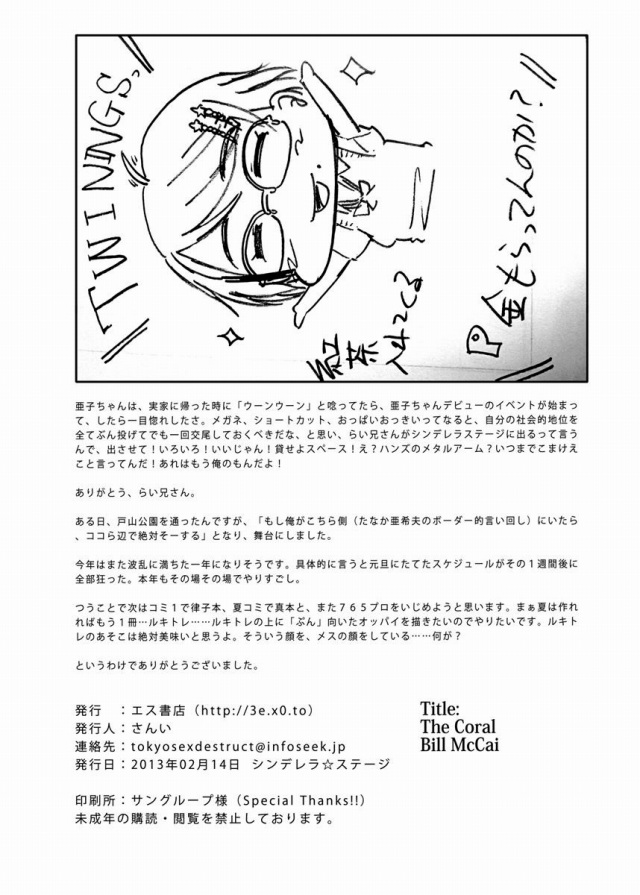 TWININGS、
紅茶
P金もらってんのか?
亜子ちゃんは、実家に帰った時に「ウーンウーン」と唸ってたら、亜子ちゃんデビューのイベントが始まっ
て、したら一目惚れしたさ。メガネ、ショートカット、おっぱいおっきいってなると、自分の社会的地位を
全てぶん投げてでも一回交尾しておくべきだな、と思い、らい兄さんがシンデレラステージに出るって言う
んで、出させて！いろいろ！いいじゃん！貸せよスペース！え？ハンズのメタルアーム？いつまでこまけえ
こと言ってんだ！あれはもう俺のもんだよ！
ありがとう、らい兄さん。
ある日、戸山公園を通ったんですが、「もし俺がこちら側（たなか亜希夫のボーダー的言い回し）にいたら
、ココら辺で絶対そーする」となり、舞台にしました。
今年はまた波乱に満ちた一年になりそうです。具体的に言うと元旦にたてたスケジュールがその１週間後に
全部狂った。本年もその場その場でやりすごし。
つうことで次はコミ１で律子本、夏コミで真本と、また７６５プロをいじめようと思います。まぁ夏は作れ
ればもう１冊…ルキトレ……ルキトレの上に「ぷん」向いたオッパイを描きたいのでやりたいです。ルキト
レのあそこは絶対美味いと思うよ。そういう顔を、メスの顔をしている……何が？
というわけでありがとうございました。
発行　：エス書店（http://3e.x0.to）
発行人：さんい
連絡先：tokyosexdestruct@infoseek.jp
発行日：2013年02月14日　シンデレラ☆ステージ
Title:
The Coral
Bill McCai
印刷所：サングループ様（Special Thanks!!）
未成年の購読・閲覧を禁止しております。